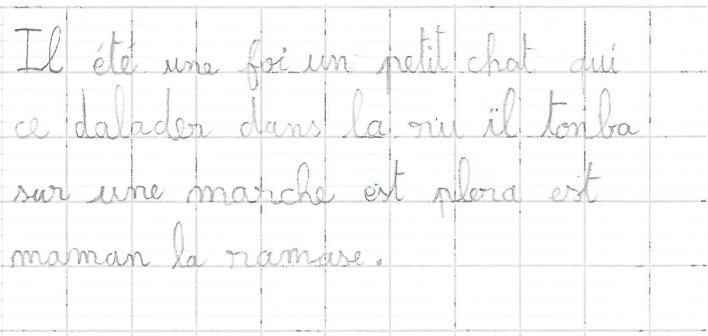 Il été une foi un petit chat qui
ce dalader dans la ru il tonba
sur une marche est plora est
maman la ramase.